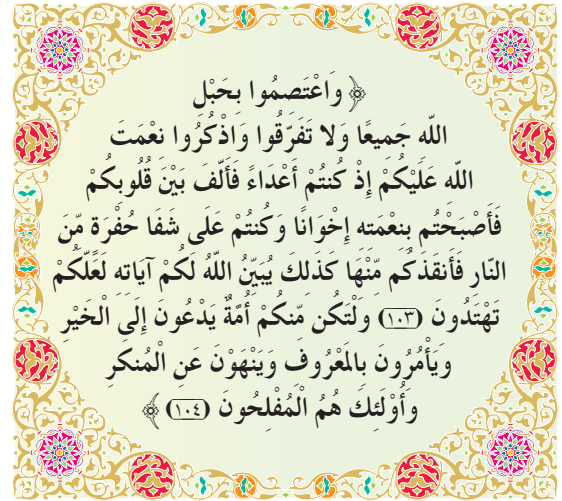 ﴿ وَاعْتَصِمُوا بِحَبْلِ
اللّه جَميعًا وَلا تَفَرّقُوا وَاذْكُرُوا نعْمَتَ
اللّه عَلَيْكُمْ إِذْ كُنتُمْ أَعْدَاءً فَأَلّفَ بَيْنَ قُلُوبكُمْ
فَأَصْبَحْتُم بِنعْمَته إِخْوَانًا وَكُنتُمْ عَلَى شَفَا حُفْرَة مّنَ
النّارِ فَأَنقَذَكُم مِّنْهَا كَذَلكَ يُبَيّنُ اللّهُ لَكُمْ آيَاته لَعَلّكُمْ
تَهْتَدُونَ (١٠٣) وَلْتَكُن مّنكُمْ أُمّةٌ يَدْعُونَ إِلَى الْخَيْرِ
وَيَأْمُرُونَ بالمَعْرُوف وَيَنْهَوْنَ عَنِ الْمُنكَرِ
وَأُوْلَئكَ هُمُ الْمُفْلِحُونَ (١٠٤) ﴾